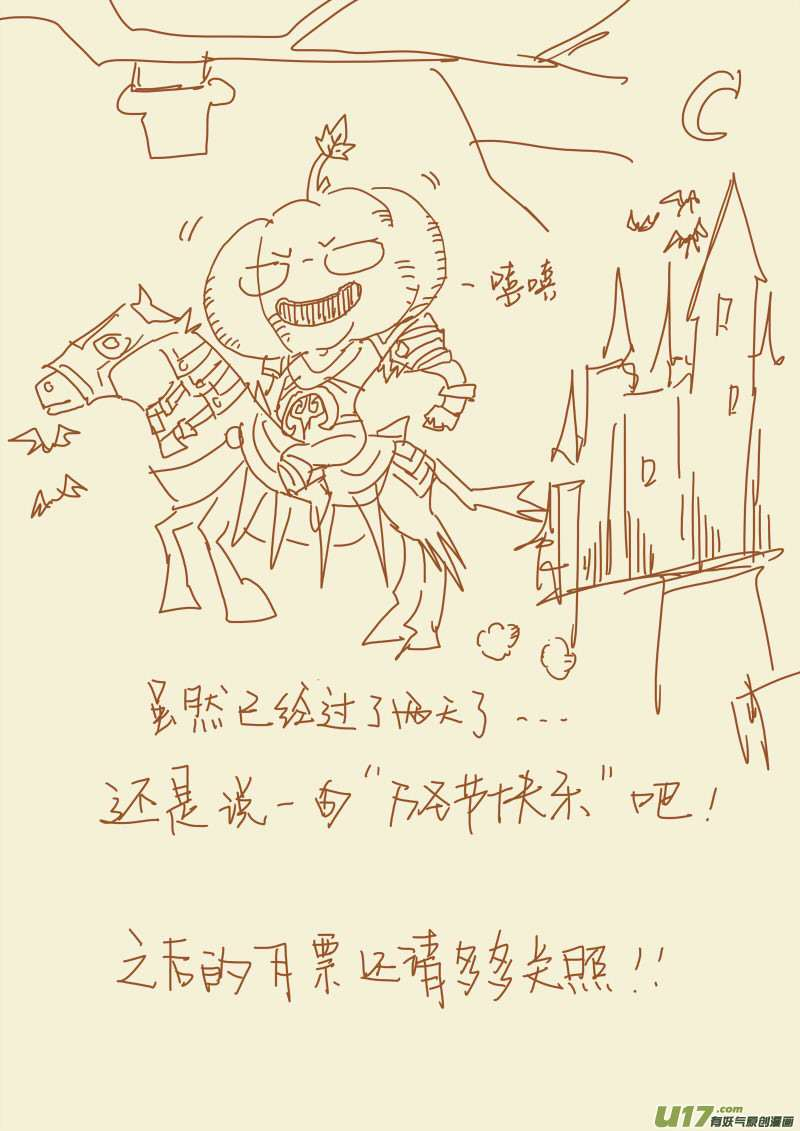 嘻嘻
虽然已经过了两天了...
还是说一句“万圣节快乐”吧!
之后的月票还请多多关照!!
U17.com
有妖气原创漫画